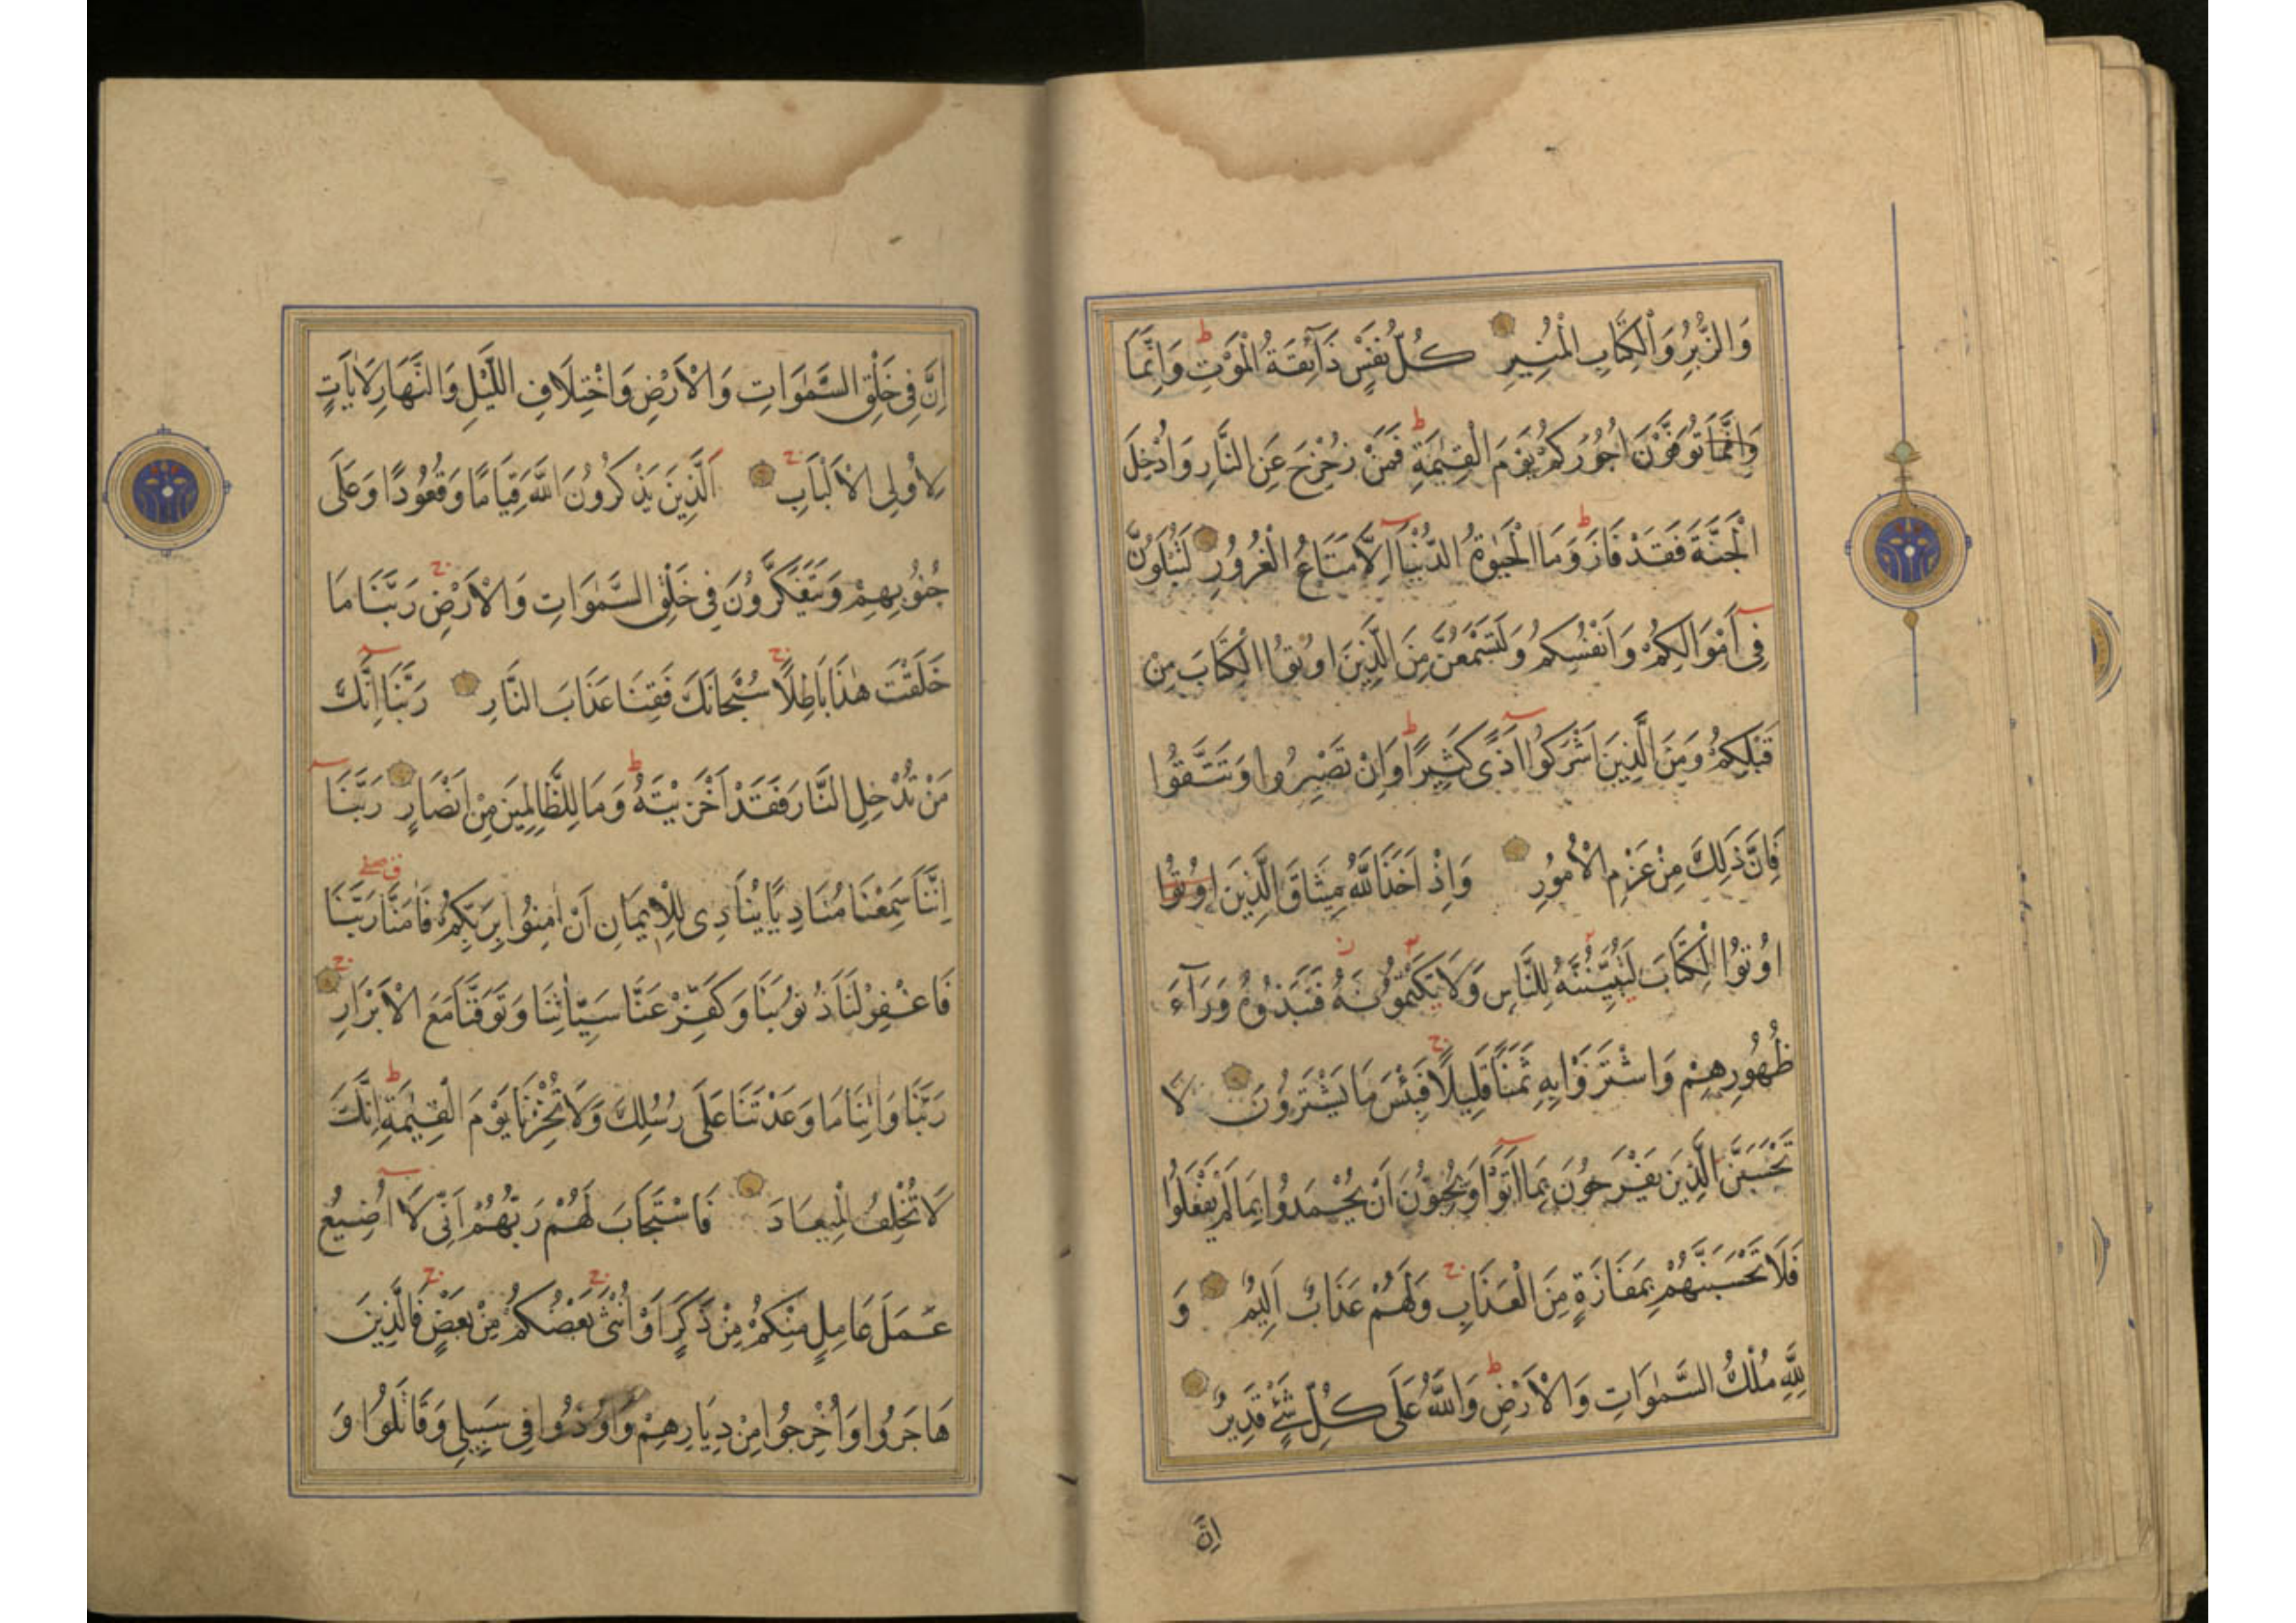 وَالزُّبُرِ وَالْكِتَابِ الْمُنِيرِ كُلُّ نَفْسٍ ذَآئِقَةُ الْمَوْتِ ط وَاِنَّمَا
وَاِنَّمَا تُوَفَّوْنَ اُجُورَكُمْ يَوْمَ الْقِيٰمَةِ ط فَمَنْ زُحْزِحَ عَنِ النَّارِ وَاُدْخِلَ
الْجَنَّةَ فَقَدْ فَازَ ط وَمَا الْحَيٰوةُ الدُّنْيَا اِلَّا مَتَاعُ الْغُرُورِ لَتُبْلَوُنَّ
فِى اَمْوَالِكُمْ وَاَنْفُسِكُمْ وَلَتَسْمَعُنَّ مِنَ الَّذِينَ اُوتُوا الْكِتَابَ مِنْ
قَبْلِكُمْ وَمِنَ الَّذِينَ اَشْرَكُوا اَذًى كَثِيرًا ط وَاِنْ تَصْبِرُوا وَتَتَّقُوا
فَاِنَّ ذٰلِكَ مِنْ عَزْمِ الْاُمُورِ وَاِذْ اَخَذَ اللّٰهُ مِيثَاقَ الَّذِينَ اُوتُوا
اُوتُوا الْكِتَابَ لَتُبَيِّنُنَّهُ لِلنَّاسِ وَلَا يَكْتُمُونَهُ فَنَبَذُوهُ وَرَآءَ
ظُهُورِهِمْ وَاشْتَرَوْا بِهِ ثَمَنًا قَلِيلًا ج فَبِئْسَ مَا يَشْتَرُونَ لَا
تَحْسَبَنَّ الَّذِينَ يَفْرَحُونَ بِمَا اَتَوْا وَيُحِبُّونَ اَنْ يُحْمَدُوا بِمَا لَمْ يَفْعَلُوا
فَلَا تَحْسَبَنَّهُمْ بِمَفَازَةٍ مِنَ الْعَذَابِ ج وَلَهُمْ عَذَابٌ اَلِيمٌ وَ
لِلّٰهِ مُلْكُ السَّمٰوَاتِ وَالْاَرْضِ ط وَاللّٰهُ عَلَى كُلِّ شَىْءٍ قَدِيرٌ
اِنَّ
اِنَّ فِى خَلْقِ السَّمٰوَاتِ وَالْاَرْضِ وَاخْتِلَافِ اللَّيْلِ وَالنَّهَارِ لَاٰيَاتٍ
لِاُولِى الْاَلْبَابِ ج اَلَّذِينَ يَذْكُرُونَ اللّٰهَ قِيَامًا وَقُعُودًا وَعَلَى
جُنُوبِهِمْ وَيَتَفَكَّرُونَ فِى خَلْقِ السَّمٰوَاتِ وَالْاَرْضِ ج رَبَّنَا مَا
خَلَقْتَ هٰذَا بَاطِلًا ج سُبْحَانَكَ فَقِنَا عَذَابَ النَّارِ رَبَّنَا اِنَّكَ
مَنْ تُدْخِلِ النَّارَ فَقَدْ اَخْزَيْتَهُ ط وَمَا لِلظَّالِمِينَ مِنْ اَنْصَارٍ رَبَّنَا
اِنَّنَا سَمِعْنَا مُنَادِيًا يُنَادِى لِلْاِيمَانِ اَنْ اٰمِنُوا بِرَبِّكُمْ فَاٰمَنَّا رَبَّنَا
فَاغْفِرْ لَنَا ذُنُوبَنَا وَكَفِّرْ عَنَّا سَيِّاٰتِنَا وَتَوَفَّنَا مَعَ الْاَبْرَارِ ج
رَبَّنَا وَاٰتِنَا مَا وَعَدْتَنَا عَلَى رُسُلِكَ وَلَا تُخْزِنَا يَوْمَ الْقِيٰمَةِ ط اِنَّكَ
لَا تُخْلِفُ الْمِيعَادَ فَاسْتَجَابَ لَهُمْ رَبُّهُمْ اَنِّى لَا اُضِيعُ
عَمَلَ عَامِلٍ مِنْكُمْ مِنْ ذَكَرٍ اَوْ اُنْثَى ج بَعْضُكُمْ مِنْ بَعْضٍ ج فَالَّذِينَ
هَاجَرُوا وَاُخْرِجُوا مِنْ دِيَارِهِمْ وَاُوذُوا فِى سَبِيلِى وَقَاتَلُوا وَ